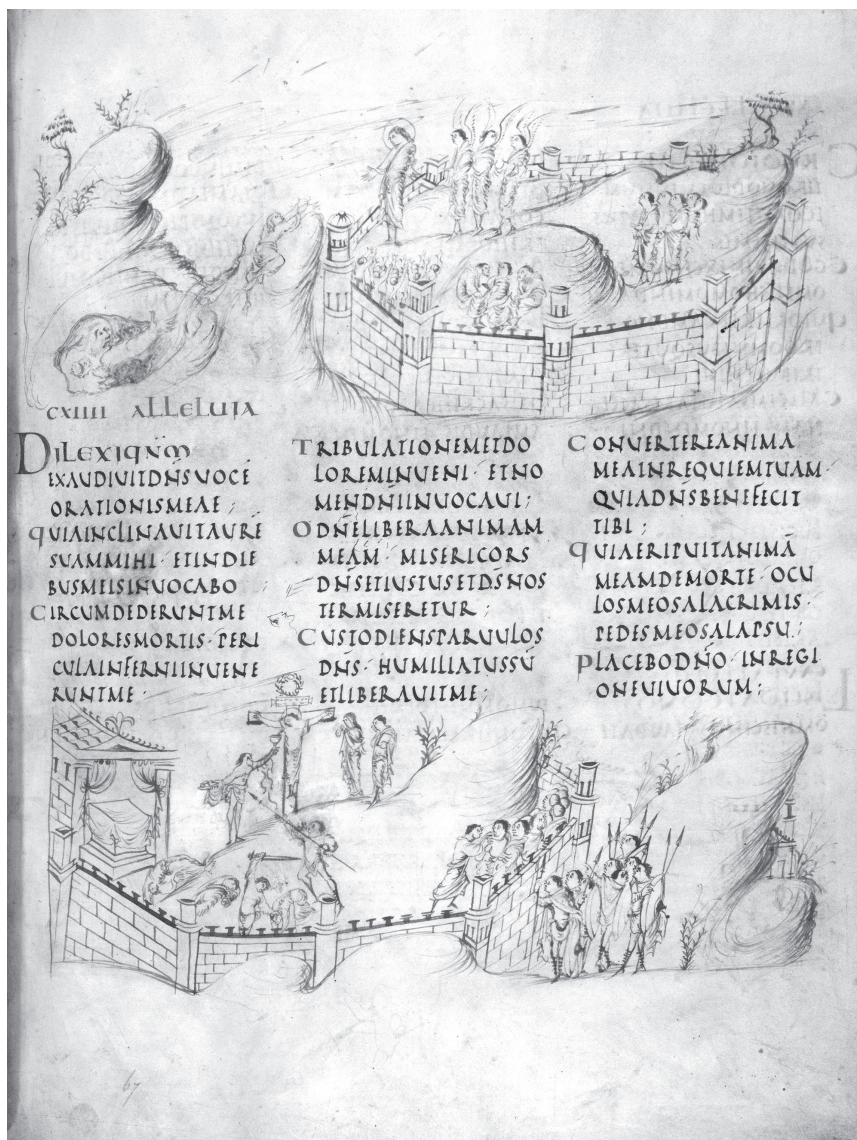 CXIIII ALLELUIA
DILEXI QNM
EXAUDIUIT DNS UOCĒ
ORATIONIS MEAE ;
QUIA INCLINAUIT AURĒ
SUAM MIHI · ET IN DIE
BUS MEIS INUOCABO ·
CIRCUMDEDERUNT ME
DOLORES MORTIS · PERI
CULA INFERNI INUENE
RUNT ME ·
TRIBULATIONEM ET DO
LOREM INUENI · ET NO
MEN DNI INUOCAUI ;
O DNE LIBERA ANIMAM
MEAM · MISERICORS
DNS ET IUSTUS ET DS NOS
TER MISERETUR ;
CUSTODIENS PARUULOS
DNS · HUMILIATUS SŪ
ET LIBERAUIT ME ;
CONUERTERE ANIMA
MEA IN REQUIEM TUAM ·
QUIA DNS BENEFECIT
TIBI ;
QUIA ERIPUIT ANIMĀ
MEAM DE MORTE · OCU
LOS MEOS A LACRIMIS ·
PEDES MEOS A LAPSU ;
PLACEBO DNO · IN REGI
ONE UIUORUM ;
67